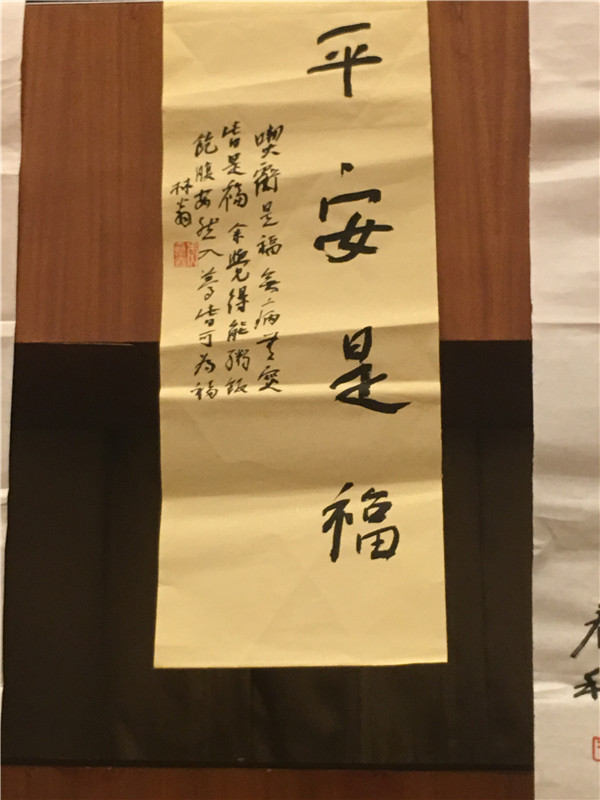 平安是福
喫虧是福無病無災
皆是福余覺得能粥飯
飽腹安然入夢皆可為福
林翁